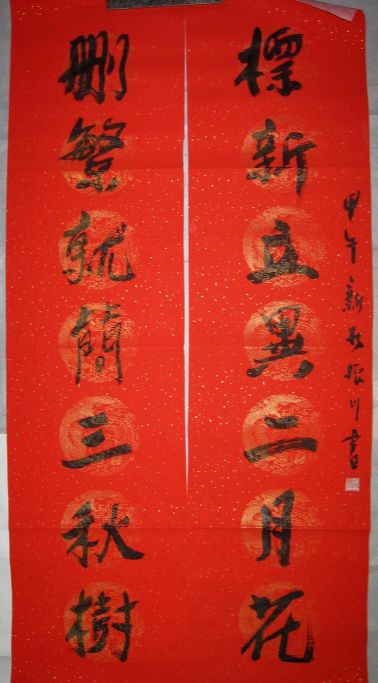 甲午新秋振川書
標新立異二月花
删繁就簡三秋樹